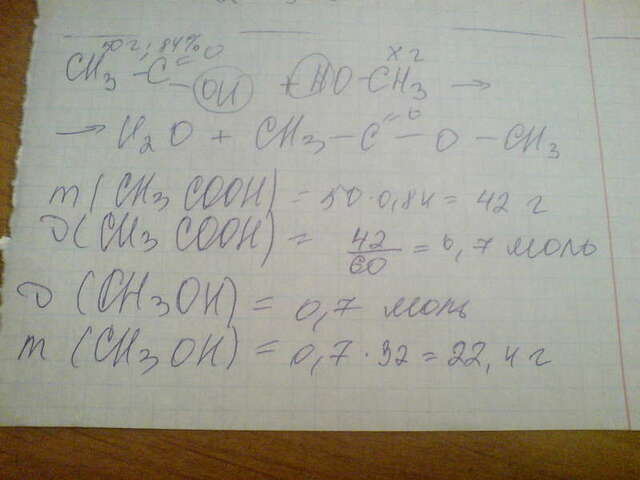 50 г, 84% х г
CH₃ - C = O - OH + HO - CH₃ →
→ H₂O + CH₃ - C = O - O - CH₃
m (CH₃COOH) = 50 · 0,84 = 42 г
ν (CH₃COOH) = 42/60 = 0,7 моль
ν (CH₃OH) = 0,7 моль
m (CH₃OH) = 0,7 · 32 = 22,4 г